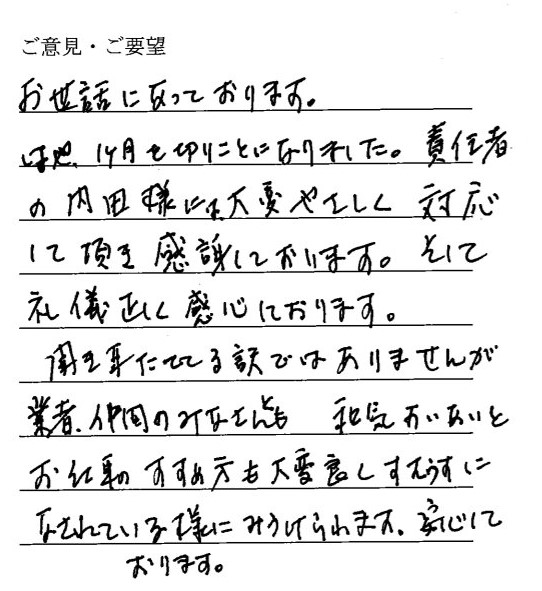 ご意見・ご要望
お世話になっております。
1ヶ月を切りことになりました。責任者
の内田様には大変やさしく対応
して頂き感謝しております。そして
礼儀正しく感心しております。
聞き耳たてる訳ではありませんが
業者、仲間のみなさんとも 和気あいあいと
お仕事のすすめ方も大変良し
なされている様にみうけられます。安心して
おります。